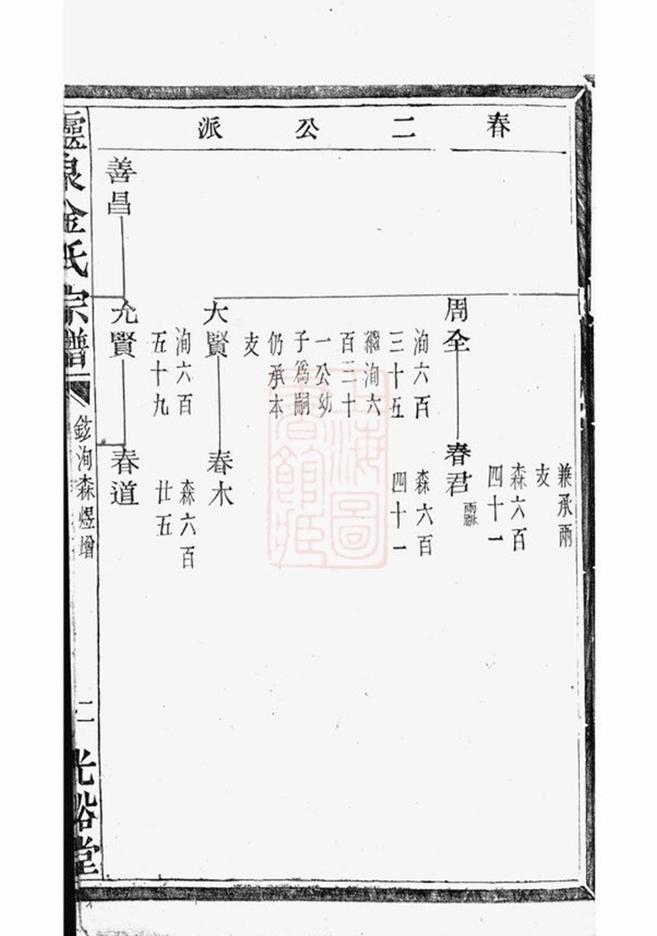 春二公派
兼承兩
支
森六百
四十一
周全
春君
兩祧
洵六百
三十五
森六百
四十一
繼洵六
百三十
一公幼
子為嗣
仍承本
支
大賢
春木
洵六百
五十九
森六百
廿五
善昌
允賢
春道
靈泉金氏宗譜
鈜洵森煜增
二
光裕堂